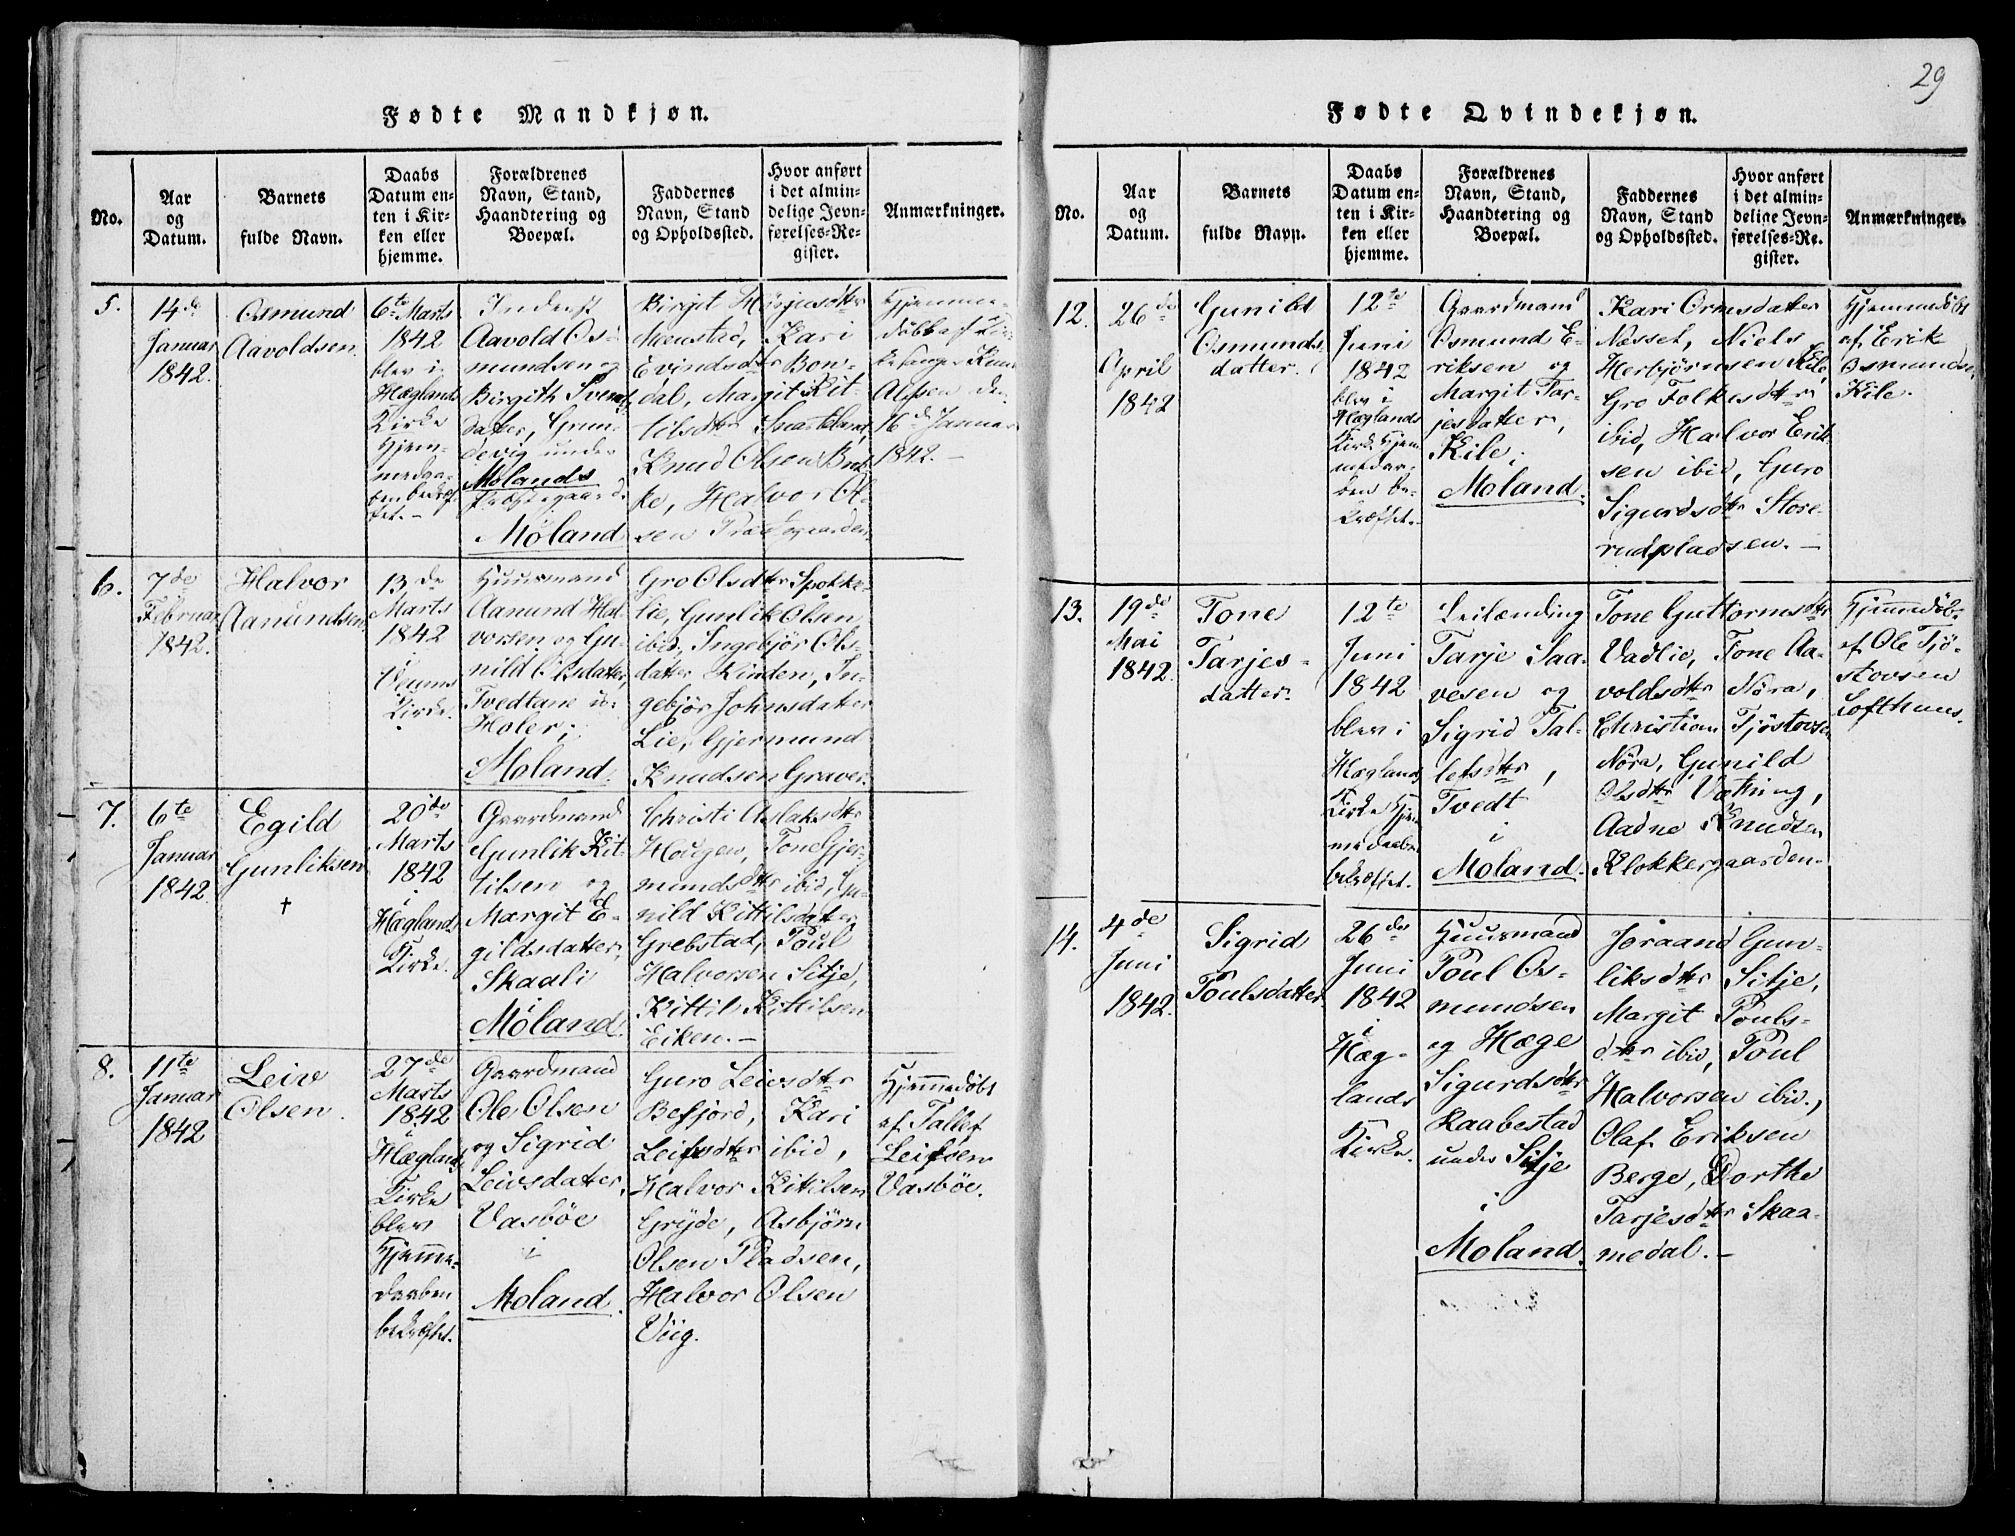 29
Fødte Mandkjøn.
No.
Aar
og
Datum.
Barnets
fulde Navn.
Daabs
Datum en-
ten i Kir-
ken eller
hjemme.
Forældrenes
Navn, Stand,
Haandtering og
Boepæl.
Faddernes
Navn, Stand
og Opholdssted.
Hvor anført
i det almin-
delige Jevn-
førelses-Re-
gister.
Anmærkninger.
5.
14de
Januar
1842.
Osmund
Aavoldsen
6te Marts
1842
blev i
Hæglands
Kirke
Hjem-
medaa-
ben bekræf-
tet.
Inderst
Aavold Os-
mundsen og
Birgith Svens-
datter, Grun-
devig under
Molands
Præstegaard
i
Moland
Birgit
Moenstad, Kari
Evindsdtr Bon-
dal, Margit Kit-
tilsdtr
Knud Olsen
Halvor Ol-
sen
Hjemme-
døbt af
Knud
Olsen den
16de Januar
1842.
6.
7de
Februar
1842.
Halvor
Aanundsen
13de
Marts
1842
i
Veums
Kirke.
Huusmand
Aanund Hal-
vorsen og Gu-
nild Olsdatter,
Tvedtane u.
Holer i
Moland.
Gro Olsdtr Spokke-
lie, Gunlik Olsen
ibid, Ingebjør Ols-
datter Kinden, In-
gebjør Johnsdatter
Lie, Gjermund
Knudsen Graver.
7.
6te
Januar
1842.
Egild
Gunliksen
†
20de
Marts
1842
i
Hæglands
Kirke.
Gaardmand
Gunlik Kit-
tilsen og
Margit E-
gildsdatter,
Skaali
i
Moland.
Christi Aslaksdtr
Hougen, Tone Gjer-
mundsdtr ibid, Gu-
nild Kittilsdatter
Grebstad, Poul
Halvorsen Sitje,
Kittil Kittilsen
Eiken.
8.
11te
Januar
1842
Leiv
Olsen.
27de
Marts
1842
i
Hæglands
Kirke
blev
Hjemme-
daaben
bekræftet.
Gaardmand
Ole Olsen
og Sigrid
Leivsdatter,
Vasbøe
i
Moland.
Guro Leivsdtr
Befjord, Kari
Leifsdtr ibid,
Halvor Kitilsen
Gryde, Asbjørn
Olsen Pladsen,
Halvor Olsen
Viig.
Hjemmedøbt
af Tallef
Leifsen
Vasbøe.
Fødte Qvindekjøn.
No.
Aar
og
Datum.
Barnets
fulde Navn.
Daabs
Datum en-
ten i Kir-
ken eller
hjemme.
Forældrenes
Navn, Stand,
Haandtering og
Boepæl.
Faddernes
Navn, Stand
og Opholdssted.
Hvor anført
i det almin-
delige Jevn-
førelses-Re-
gister.
Anmærkninger.
12.
26de
April
1842
Gunild
Osmunds-
datter.
12te
Juni
1842
blev i
Hæglands
Kirke Hjem-
medaa-
ben be-
kræftet.
Gaardmand
Osmund E-
riksen og
Margit Tar-
jesdatter,
Kile i
Moland.
Kari Ormsdatter
Nesset, Niels
Herbjørnsen Kile,
Gro Folkesdtr
ibid, Halvor Erik-
sen ibid, Guro
Sigurdsdtr Store-
rudpladsen.
Hjemmedøbt
af Erik
Osmundsen
Kile.
13.
19de
Mai
1842.
Tone
Tarjes-
datter.
12te
Juni
1842
blev i
Hæglands
Kirke Hjem-
medaaben
bekræftet.
Leilænding
Tarje Saa-
vesen og
Sigrid Tal-
lefsdtr,
Tvedt
i
Moland.
Tone Guttormsdtr
Vadlie, Tone Aa-
voldsdtr Nøra,
Christian Tjøstovsen
Nøra, Gunild
Olsdtr Vætting,
Aadne Knudsen
Klokkergaarden.
Hjemmedøb-
af Ole Tjø-
stovsen
Lofthuus.
14.
4de
Juni
1842.
Sigrid
Poulsdatter.
26de
Juni
1842
i
Hæg-
lands
Kirke.
Huusmand
Poul Os-
mundsen
og Hæge
Sigurdsdtr
Raabestad
under Sitje
i
Moland.
Joraand Gun-
liksdtr Sitje,
Margit Pouls-
dtr ibid, Poul
Halvorsen ibid.,
Olaf Eriksen
Berge, Dorthe
Tarjesdtr Skaa-
medal.